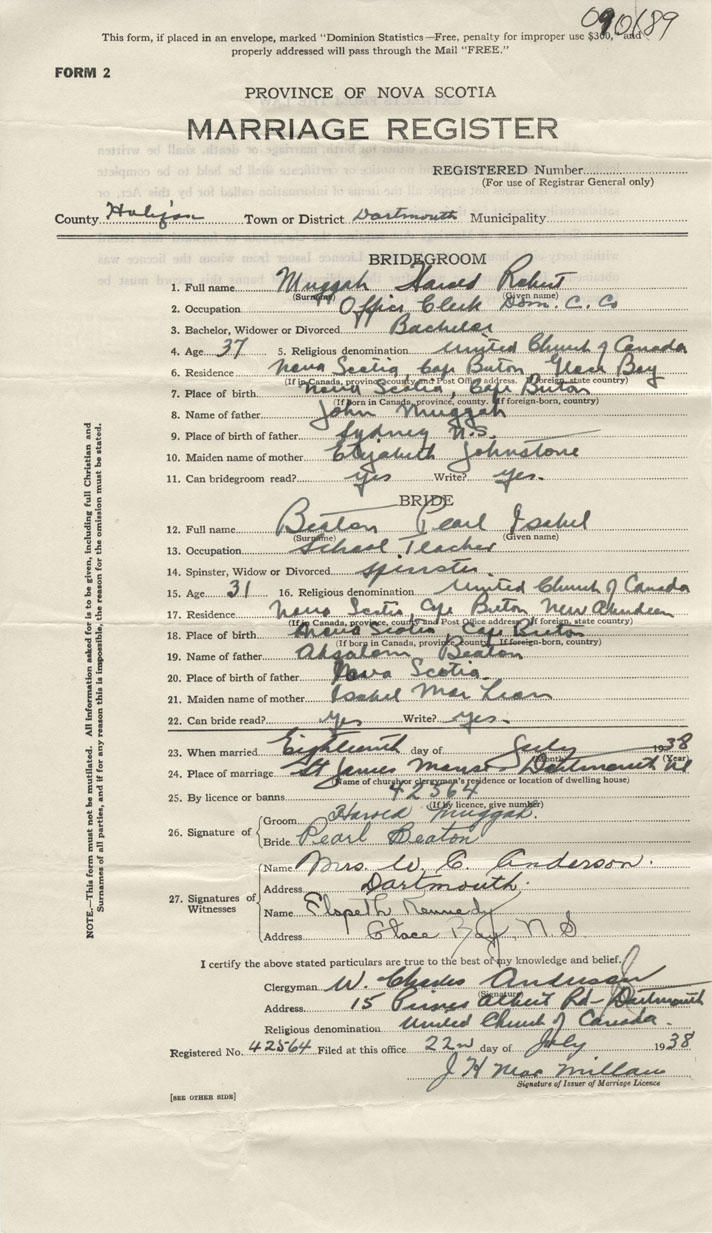 090189
This form, if placed in an envelope, marked "Dominion Statistics—Free, penalty for improper use $300," and
properly addressed will pass through the Mail "FREE."
FORM 2
PROVINCE OF NOVA SCOTIA
MARRIAGE REGISTER
REGISTERED Number
(For use of Registrar General only)
County Halifax Town or District Dartmouth Municipality
BRIDEGROOM
1. Full name Muggah Harold Robert
(Surname) (Given name)
2. Occupation Office Clerk Dom. C. Co
3. Bachelor, Widower or Divorced Bachelor
4. Age 37 5. Religious denomination United Church of Canada
6. Residence Nova Scotia, Cape Breton Glace Bay
(If in Canada, province, county and Post Office address. If foreign, state country)
7. Place of birth Nova Scotia, Cape Breton
(If born in Canada, province, county. If foreign-born, country)
8. Name of father John Muggah
9. Place of birth of father Sydney N.S.
10. Maiden name of mother Elizabeth Johnstone
11. Can bridegroom read? yes Write? yes.
BRIDE
12. Full name Beaton Pearl Isabel
(Surname) (Given name)
13. Occupation School Teacher
14. Spinster, Widow or Divorced Spinster
15. Age 31 16. Religious denomination United Church of Canada
17. Residence Nova Scotia, Cape Breton New Aberdeen
(If in Canada, province, county and Post Office address. If foreign, state country)
18. Place of birth Nova Scotia, Cape Breton
(If born in Canada, province, county. If foreign-born, country)
19. Name of father Absalom Beaton
20. Place of birth of father Nova Scotia.
21. Maiden name of mother Isabel MacLean
22. Can bride read? yes Write? yes.
23. When married Eighteenth day of July 1938
(Month) (Year)
24. Place of marriage St James Manse Dartmouth NS
(Name of church or clergyman's residence or location of dwelling house)
25. By licence or banns 42564
(If by licence, give number)
26. Signature of Groom Harold Muggah.
Bride Pearl Beaton
27. Signatures of Witnesses Name Mrs. W. C. Anderson.
Address Dartmouth.
Name Elspeth Kennedy
Address Glace Bay, N.S
I certify the above stated particulars are true to the best of my knowledge and belief.
Clergyman W. Charles Anderson
(Signature)
Address 15 Prince Albert Rd - Dartmouth
Religious denomination United Church of Canada.
Registered No. 42564 Filed at this office 22nd day of July 1938
J H MacMillan
Signature of Issuer of Marriage Licence
[SEE OTHER SIDE]
NOTE.—This form must not be mutilated. All information asked for is to be given, including full Christian and
Surnames of all parties, and if for any reason this is impossible, the reason for the omission must be stated.